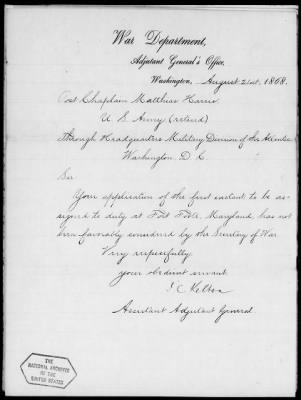 War Department,
Adjutant General's Office,
Washington, August 21st, 1868.
Post Chaplain Matthias Harris
U S Army (retired)
Through Headquarters Military Division of the Atlantic
Washington D C.
Sir
Your application of the first instant to be as-
signed to duty at Fort Foote, Maryland, has not
been favorably considered by the Secretary of War
Very respectfully
your obedient servant
J C Kelton
Assistant Adjutant General.
THE
NATIONAL ARCHIVES
OF THE
UNITED STATES